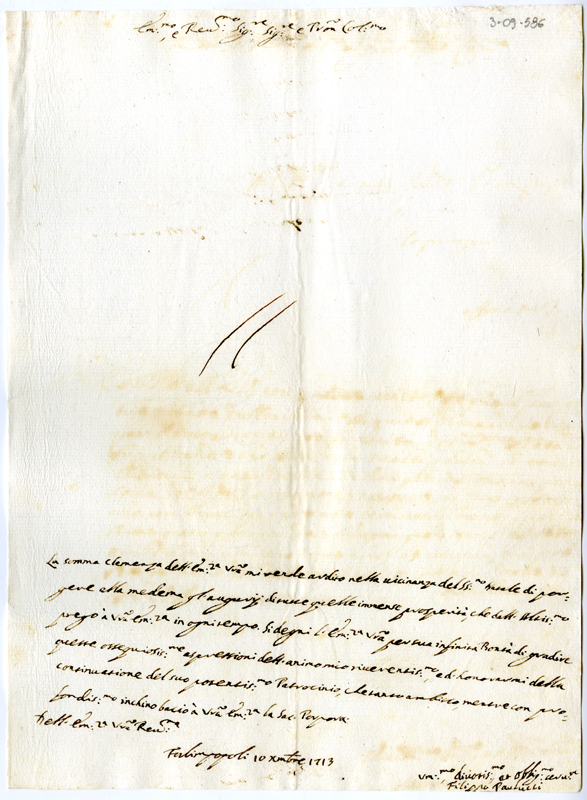 3-09-586
Em:mo, e Reu:mo Sig:re Sig:re e Pron Col:mo
La somma Clemenza dell'Em:za Vra mi rende ardito nella uicinanza del SS:mo Natale di por-
gere alla medema gl'augurij di tutte quelle immense prosperità, che dall'Altis:mo
prego à Vra Em:za in ogni tempo. Si degni l'Em:za Vra per sua infinita Bontà di gradire
queste ossequiosis:me espressioni dell'animo mio riuerentis:mo, ed honorarmi della
continuatione del suo potentis:mo Patrocinio, che tanto ambisco, mentre con pro-
fondis:mo inchino bacio à Vra Em:za la Sac: Porpora
Dell'Em:za Vra Reu:ma
Forlimpopoli 10 Xmbre 1713
Vm:mo diuotis:mo et Obb:mo
Filippo Paulucci